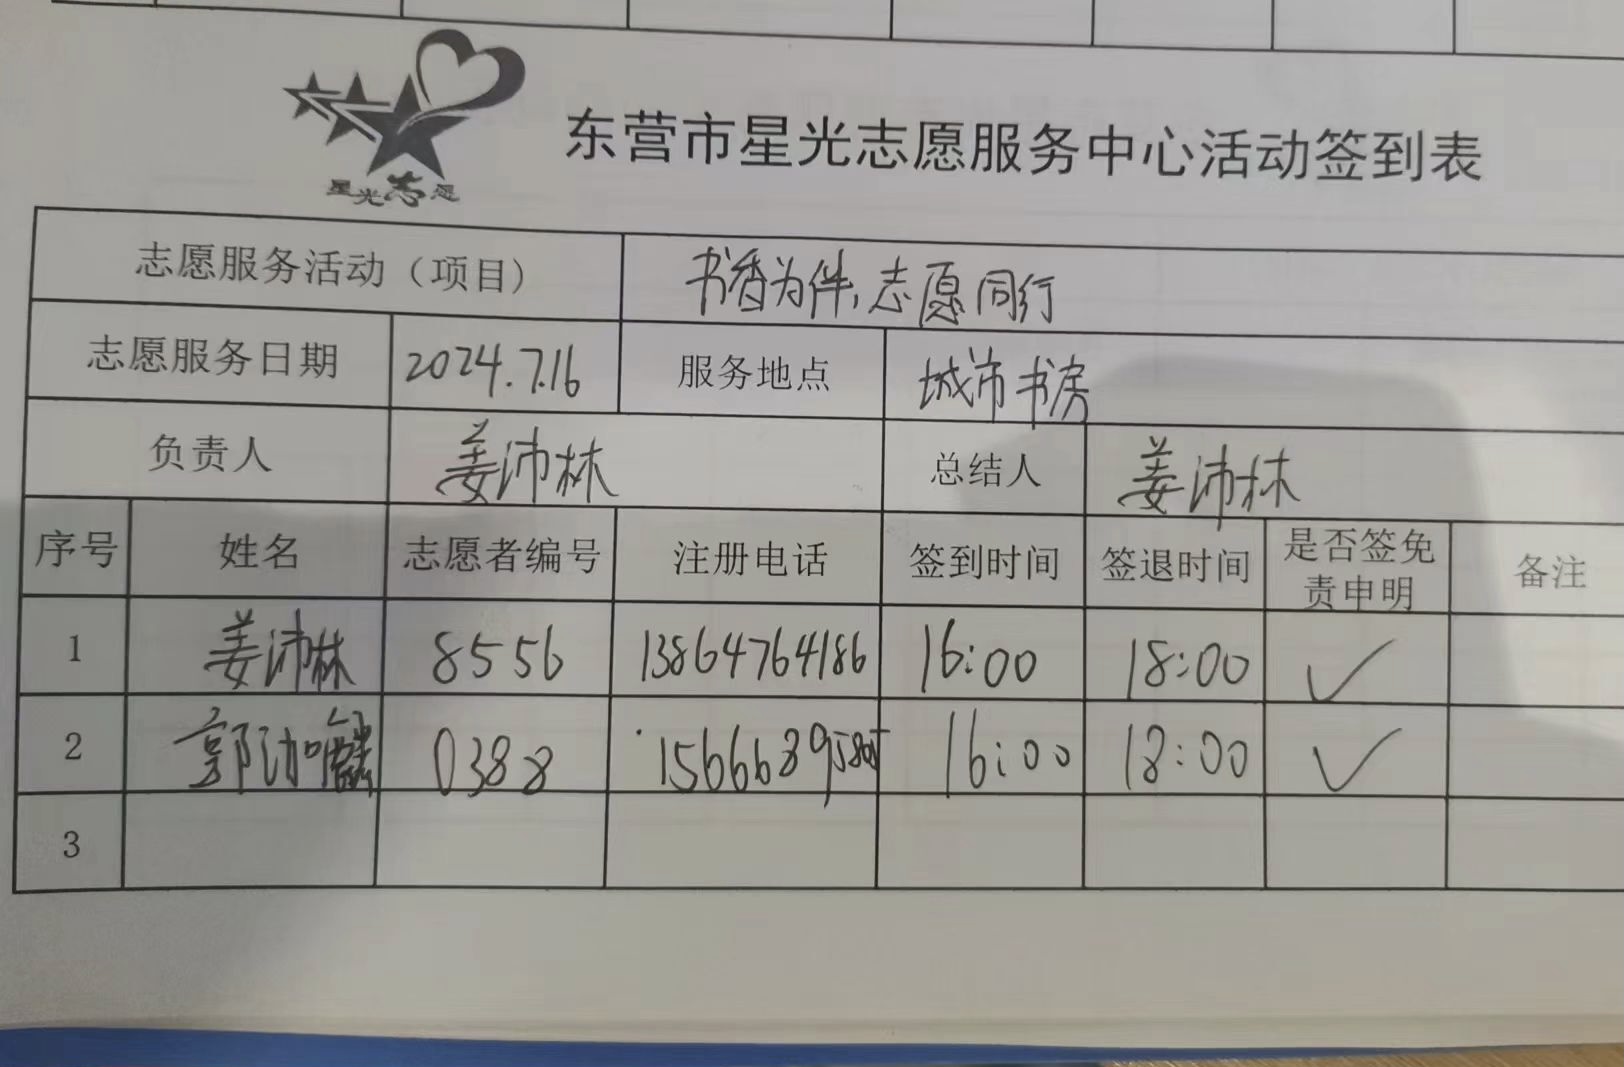 星光志愿
东营市星光志愿服务中心活动签到表
志愿服务活动（项目） 书香为伴，志愿同行
志愿服务日期 2024.7.16 服务地点 城市书房
负责人 姜沛林 总结人 姜沛林
序号 姓名 志愿者编号 注册电话 签到时间 签退时间 是否签免责申明 备注
1 姜沛林 8556 13864764186 16:00 18:00 ✓
2 0388 16:00 18:00 ✓
3